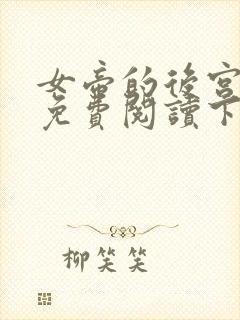 女帝的後宮
免費閱讀下
柳笑笑